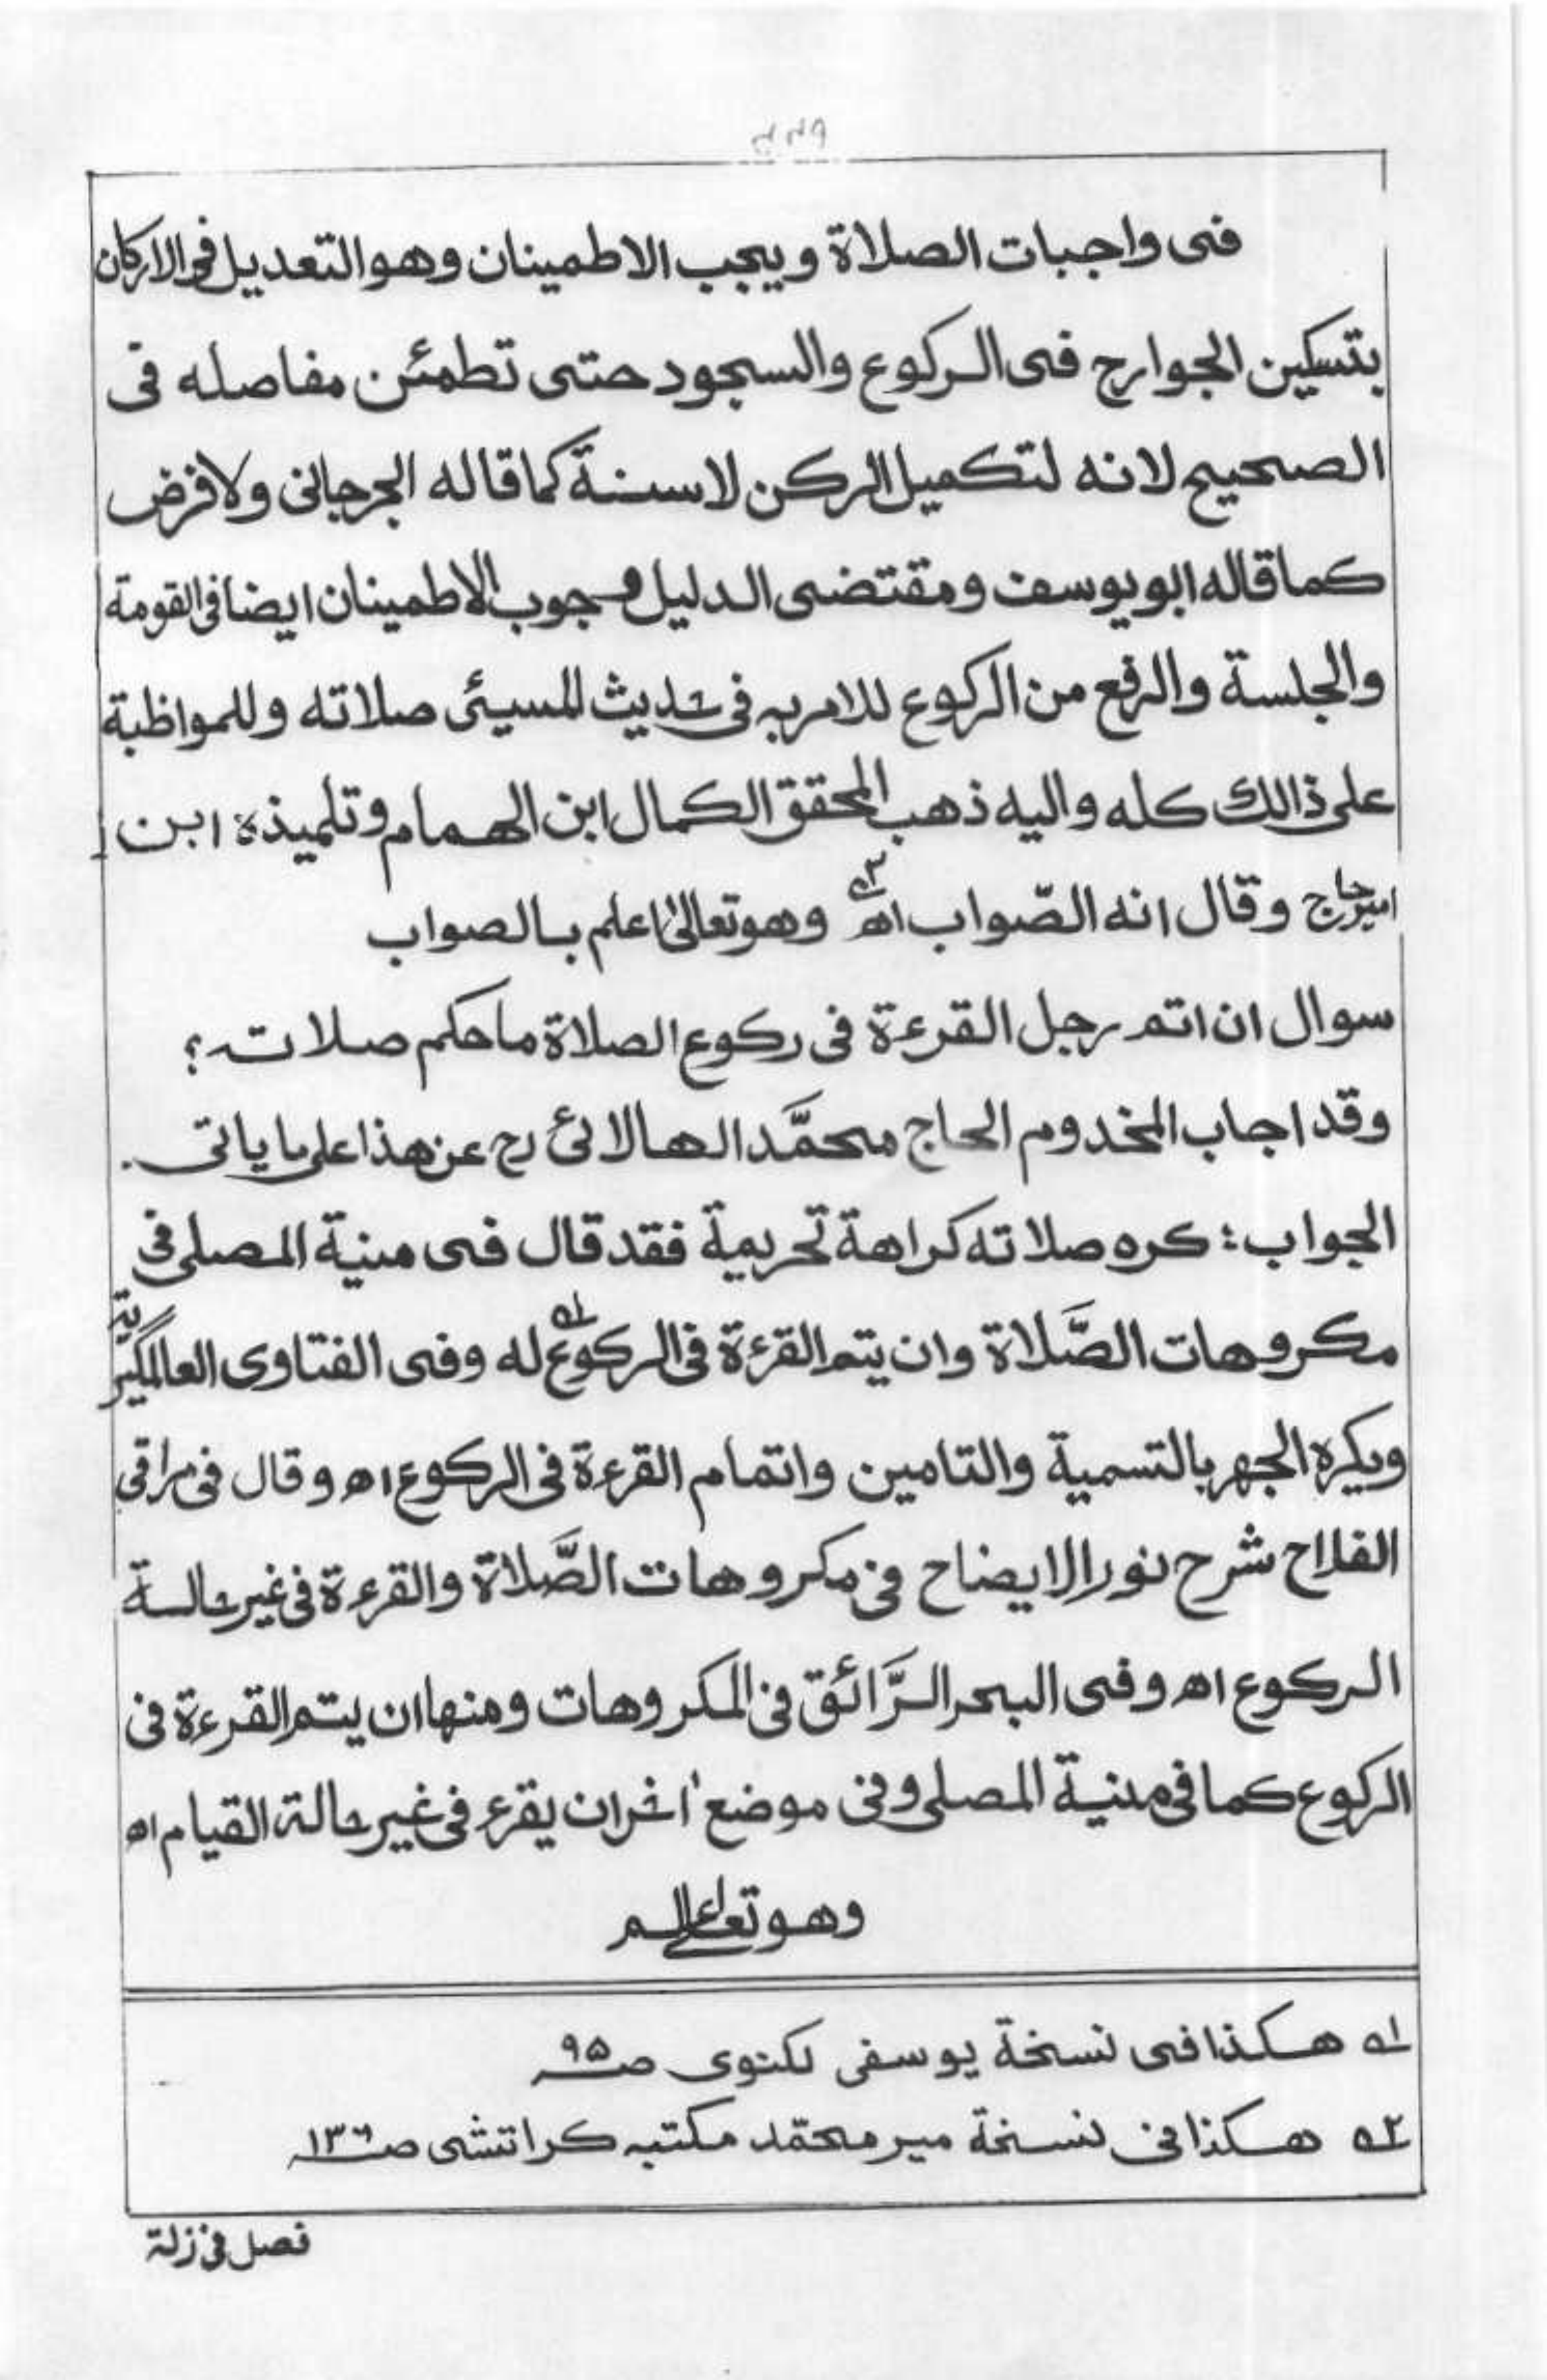 فى واجبات الصلاة ويجب الاطمينان وهو التعديل فى الاركان
بتسكين الجوارح فى الركوع والسجود حتى تطمئن مفاصله فى
الصحيح لانه لتكميل الركن لا سنة كما قاله الجرجانى ولا فرض
كما قاله ابو يوسف ومقتضى الدليل وجوب الاطمينان ايضا فى القومة
والجلسة والرفع من الركوع للامر به فى حديث المسيئ صلاته وللمواظبة
على ذالك كله واليه ذهب المحقق الكمال ابن الهمام وتلميذه ابن
امير حاج وقال انه الصّواب اھ ٢؎ وهو تعالىٰ اعلم بالصواب
سوال ان اتم رجل القرءة فى ركوع الصلاة ما حكم صلاته؟
وقد اجاب المخدوم الحاج محمَّد الهالائ رح عن هذا على ما ياتى.
الجواب: كره صلاته كراهة تحريمية فقد قال فى منية المصلى فى
مكروهات الصَّلاة وان يتم القرءة فى الركوع ١؎ له وفى الفتاوى العالمگيرية
ويكره الجهر بالتسمية والتامين واتمام القرءة فى الركوع اھ وقال فى مراقى
الفلاح شرح نور الايضاح فى مكروهات الصَّلاة والقرءة فى غير حالة
الركوع اھ وفى البحر الرَّائق فى المكروهات ومنها ان يتم القرءة فى
الركوع كما فى منية المصلى وفى موضع اٰخر ان يقرء فى غير حالة القيام اھ
وهو تعالى اعلم
١؎ هكذا فى نسخة يوسفى لكنوى صـ ٩٥
٢؎ هكذا فى نسخة مير محمّد مكتبه كراتشى صـ ١٣٦
فصل فى زلة